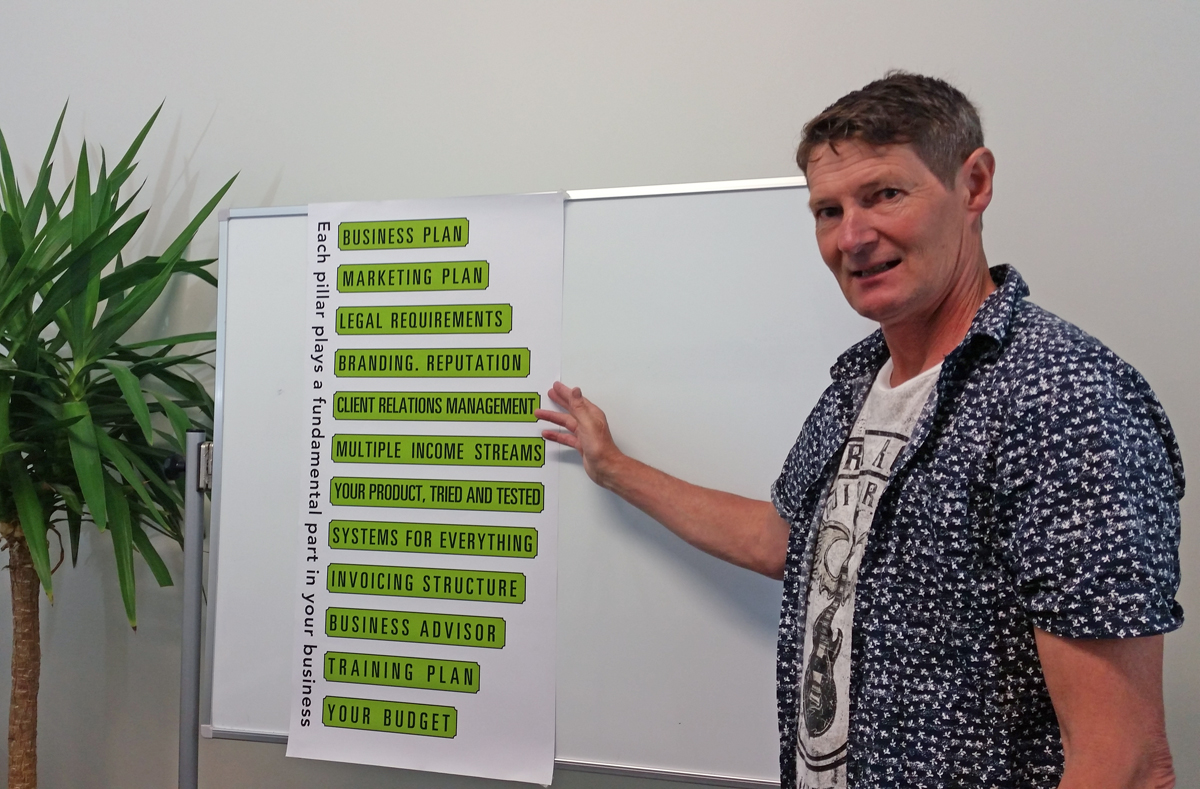 Each pillar plays a fundamental part in your business
BUSINESS PLAN
MARKETING PLAN
LEGAL REQUIREMENTS
BRANDING. REPUTATION
CLIENT RELATIONS MANAGEMENT
MULTIPLE INCOME STREAMS
YOUR PRODUCT, TRIED AND TESTED
SYSTEMS FOR EVERYTHING
INVOICING STRUCTURE
BUSINESS ADVISOR
TRAINING PLAN
YOUR BUDGET